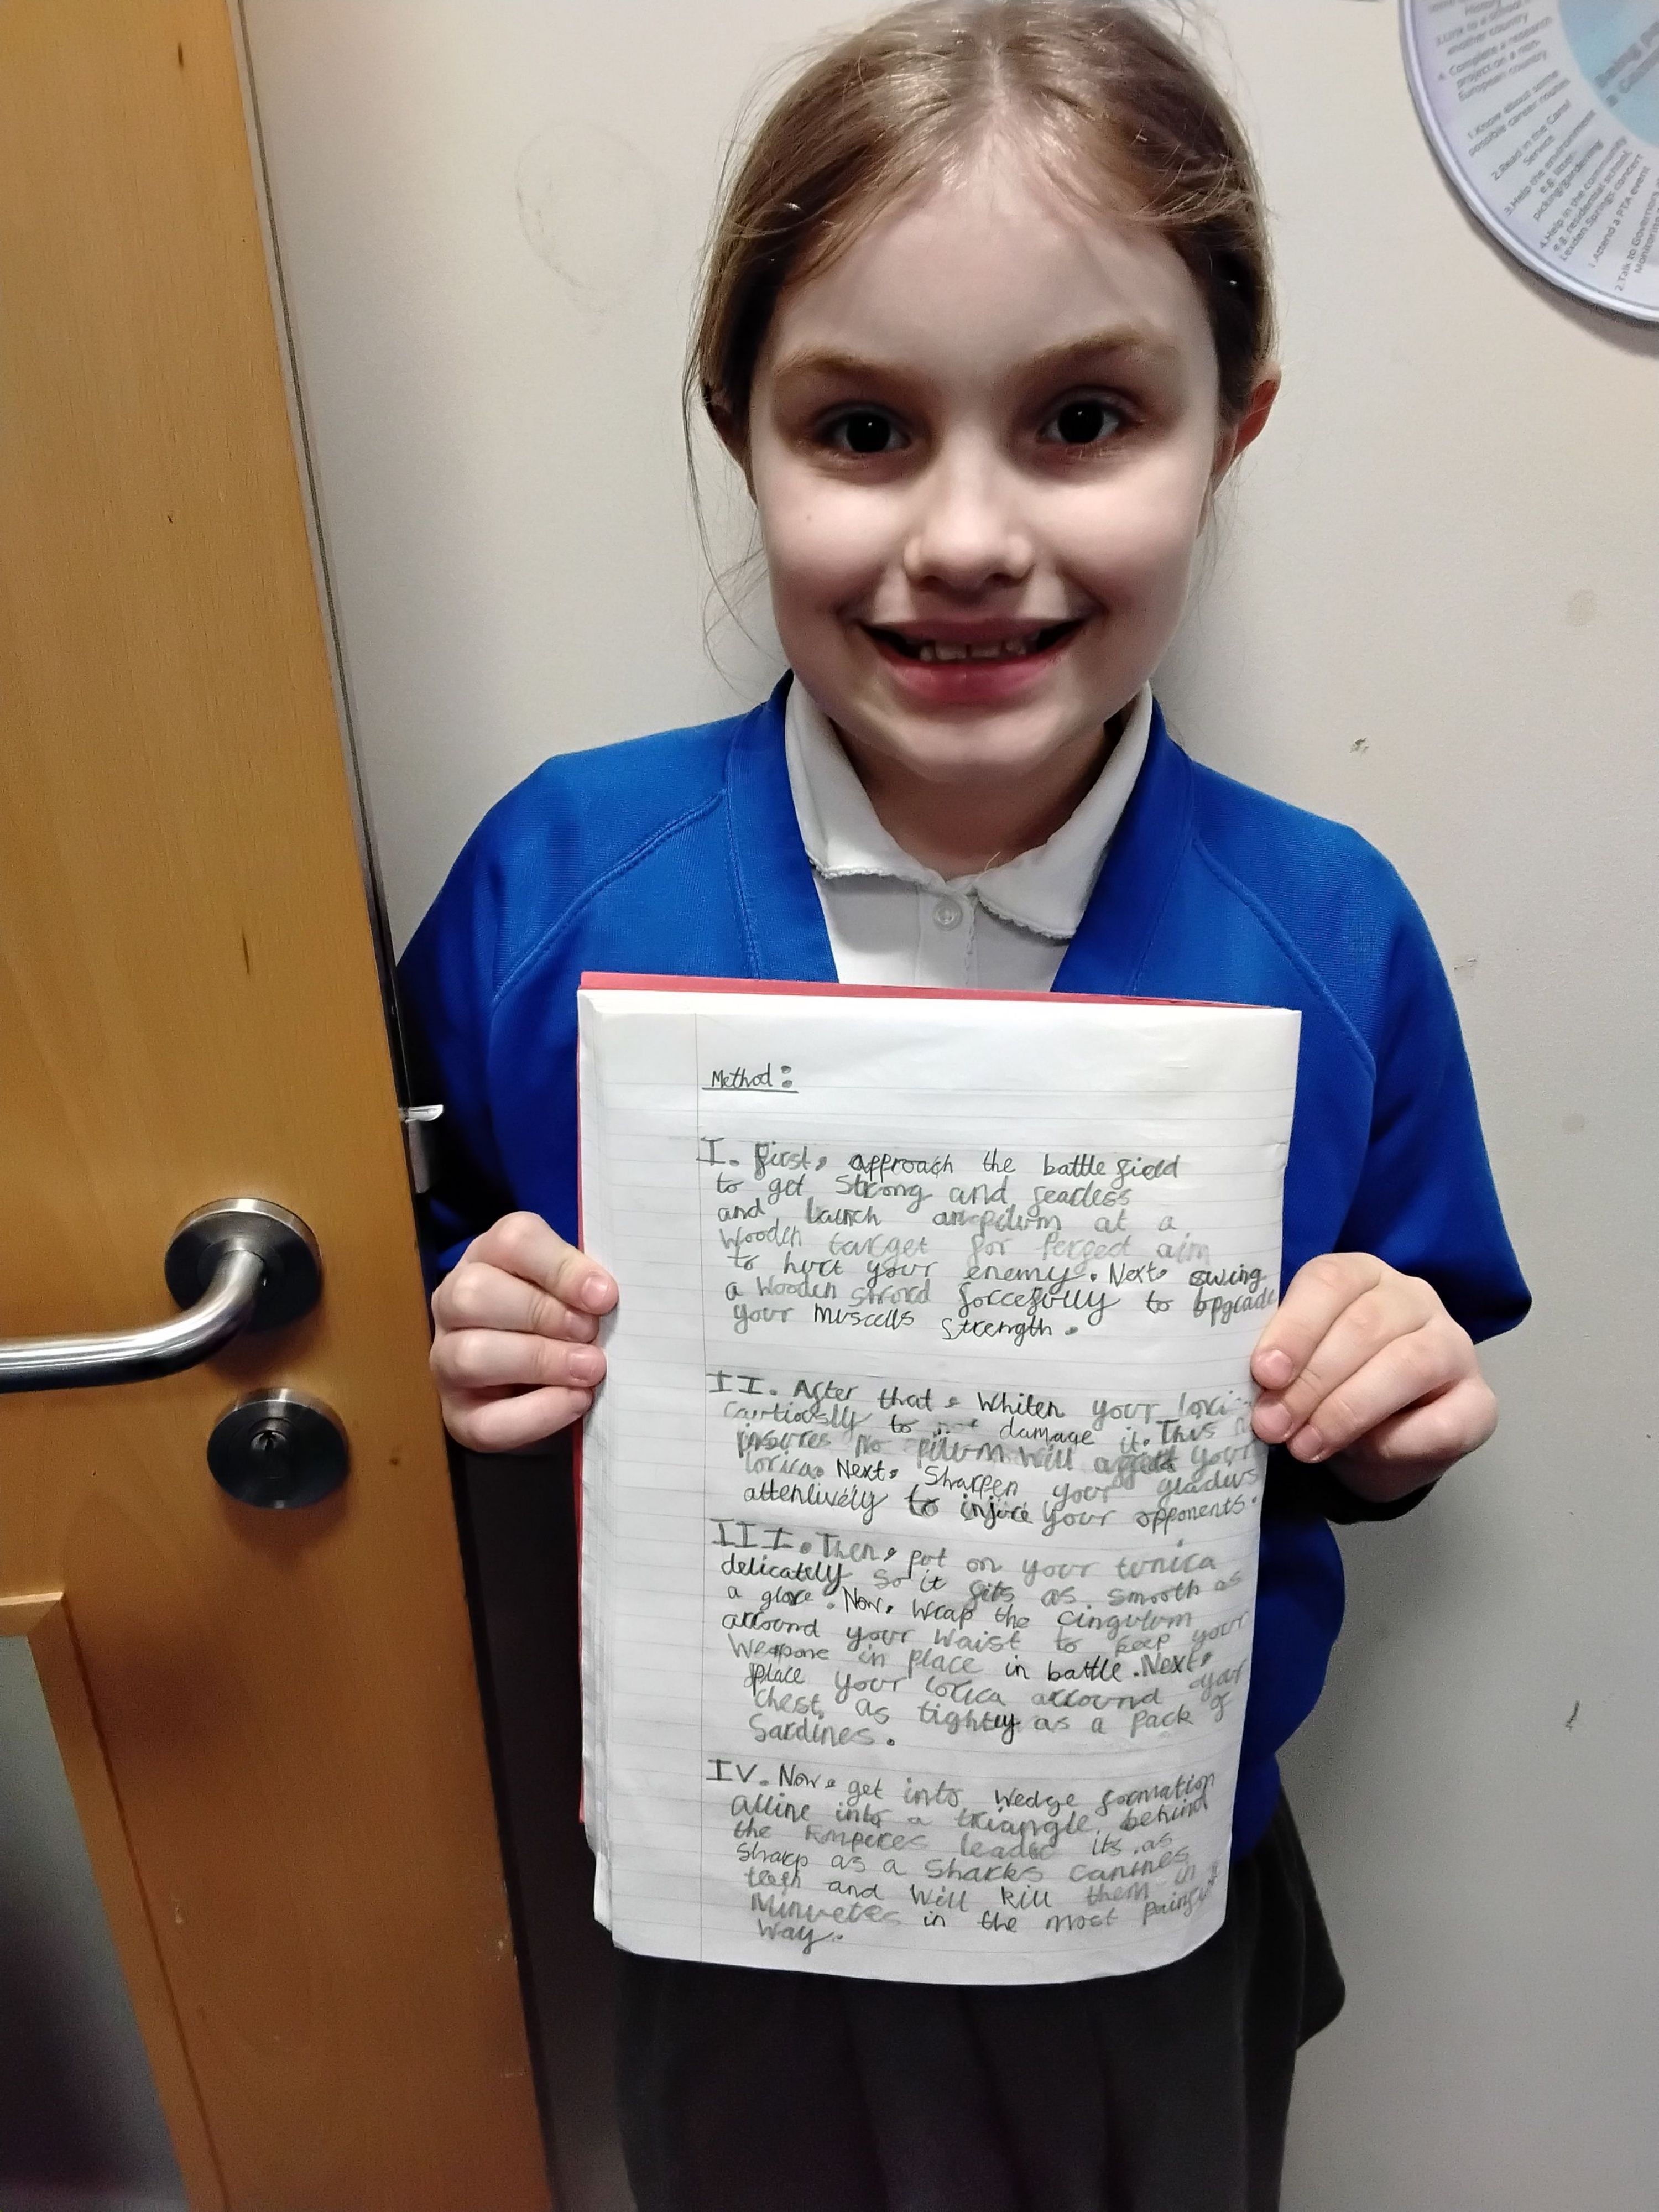 Method:
I. First, approach the battle field
to get Strong and fearless
and launch an pilum at a
wooden target for Perfect aim
to hurt your enemy. Next, swing
a wooden sword forcefully to upgrade
your muscells strength.
II. After that, Whiten your
cautiously to not damage it. This
insures no pilum will your
lorica. Next, Sharpen your gladius
attentively to injure your opponents.
III. Then, put on your tunica
delicately so it fits as smooth as
a glove. Now, wrap the cingulum
around your waist to keep your
in place in battle. Next,
place your lorica around your
chest, as tightly as a pack of
Sardines.
IV. Now, get into wedge formation
alline into a triangle behind
the Emperes leader its as
sharp as a sharks canines
teeth and will kill them in
Minuetes in the most
way.
History
3.Link to a school in
another country
4. Complete a research
project on a non-
European country
1.Know about some
possible career routes
2.Read in the Carol
Service
3.Help the environment
e.g. litter-
picking/gardening
4.Help in the community
e.g. residential school,
Leyden Springs concert
1.Attend a PTA event
2.Talk to Governors